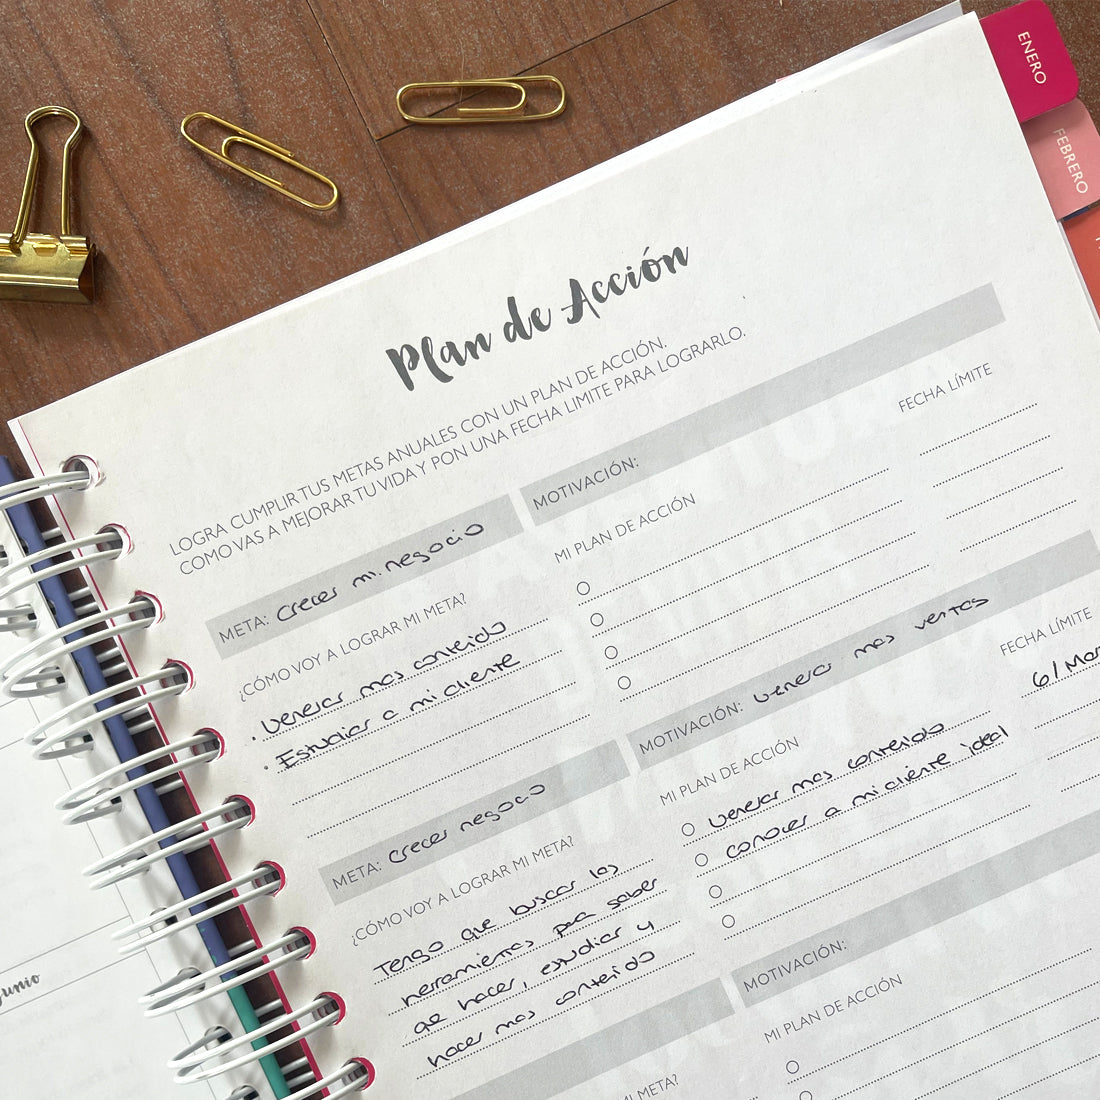 ENERO
FEBRERO
Plan de Acción
LOGRA CUMPLIR TUS METAS ANUALES CON UN PLAN DE ACCIÓN.
COMO VAS A MEJORAR TU VIDA Y PON UNA FECHA LIMITE PARA LOGRARLO.
META: crecer mi negocio
MOTIVACIÓN:
¿CÓMO VOY A LOGRAR MI META?
MI PLAN DE ACCIÓN
FECHA LÍMITE
· Generar mas conteido
· Estudiar a mi cliente
META: crecer negocio
MOTIVACIÓN: Generar mas ventas
¿CÓMO VOY A LOGRAR MI META?
MI PLAN DE ACCIÓN
FECHA LÍMITE
6/Mar
Generar mas conteido
conocer a mi cliente ideal
Tengo que buscar las
herramientas para saber
que hacer, estudiar y
hacer mas conteido
MOTIVACIÓN:
MI META?
MI PLAN DE ACCIÓN
Junio